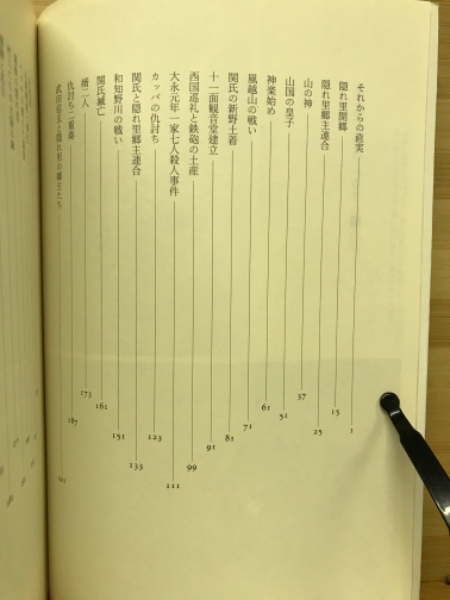 それからの直実 1
隠れ里開郷 15
隠れ里郷主連合 25
山の神 37
山国の皇子 51
神楽始め 61
風越山の戦い 71
関氏の新野土着 81
十一面観音堂建立 91
西国巡礼と鉄砲の土産 99
大永元年一家七人殺人事件 111
カッパの仇討ち 123
関氏と隠れ里郷主連合 133
和知野川の戦い 151
関氏滅亡 161
婿二人 173
仇討ち二重奏 187
武田信玄と隠れ里の郷主たち 201